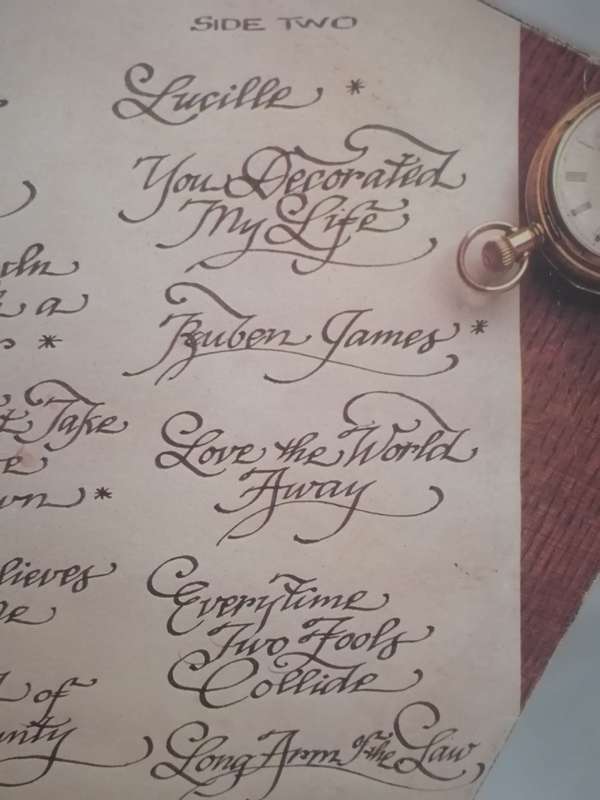 SIDE TWO
Lucille *
You Decorated
My Life
Reuben James *
Love the World
Away
Everytime
Two Fools
Collide
Long Arm of the Law
a
*
Take
*
of